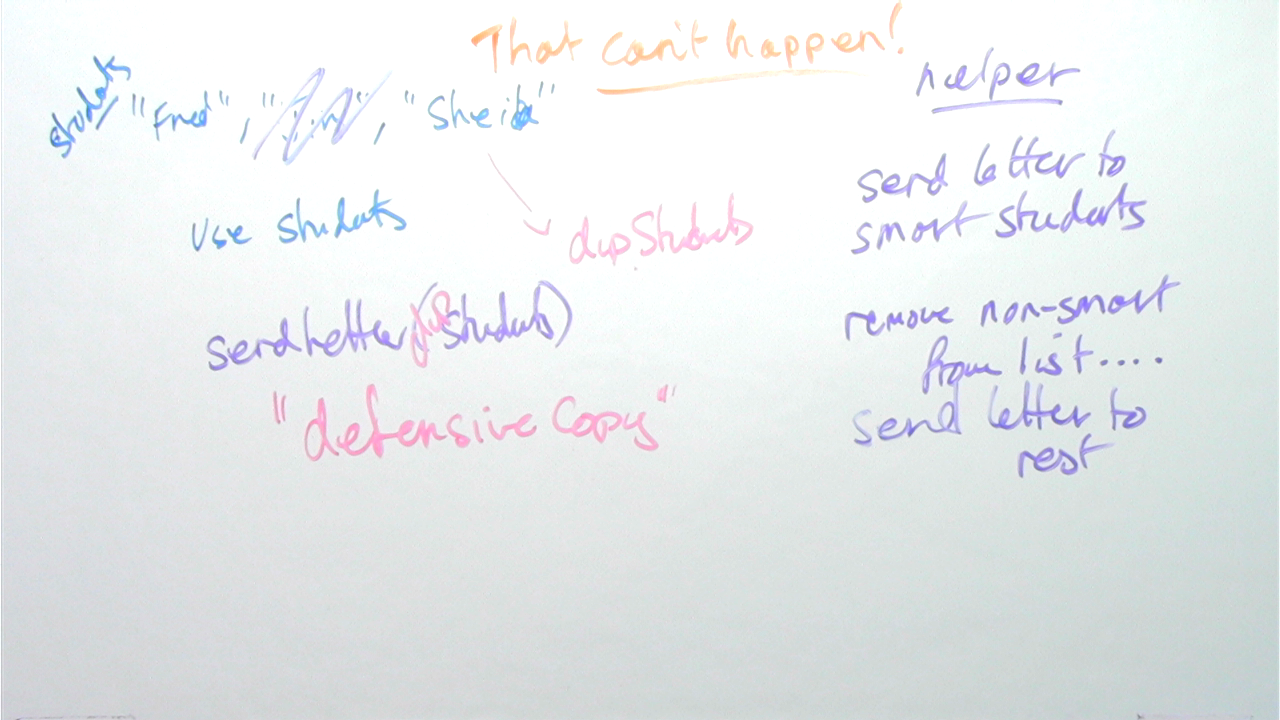 That can't happen!
students "Fred", "Jim", "Sheila"
use students
dupStudents
sendLetter(dupStudents)
"defensive copy"
helper
send letter to
smart students
remove non-smart
from list....
send letter to
rest